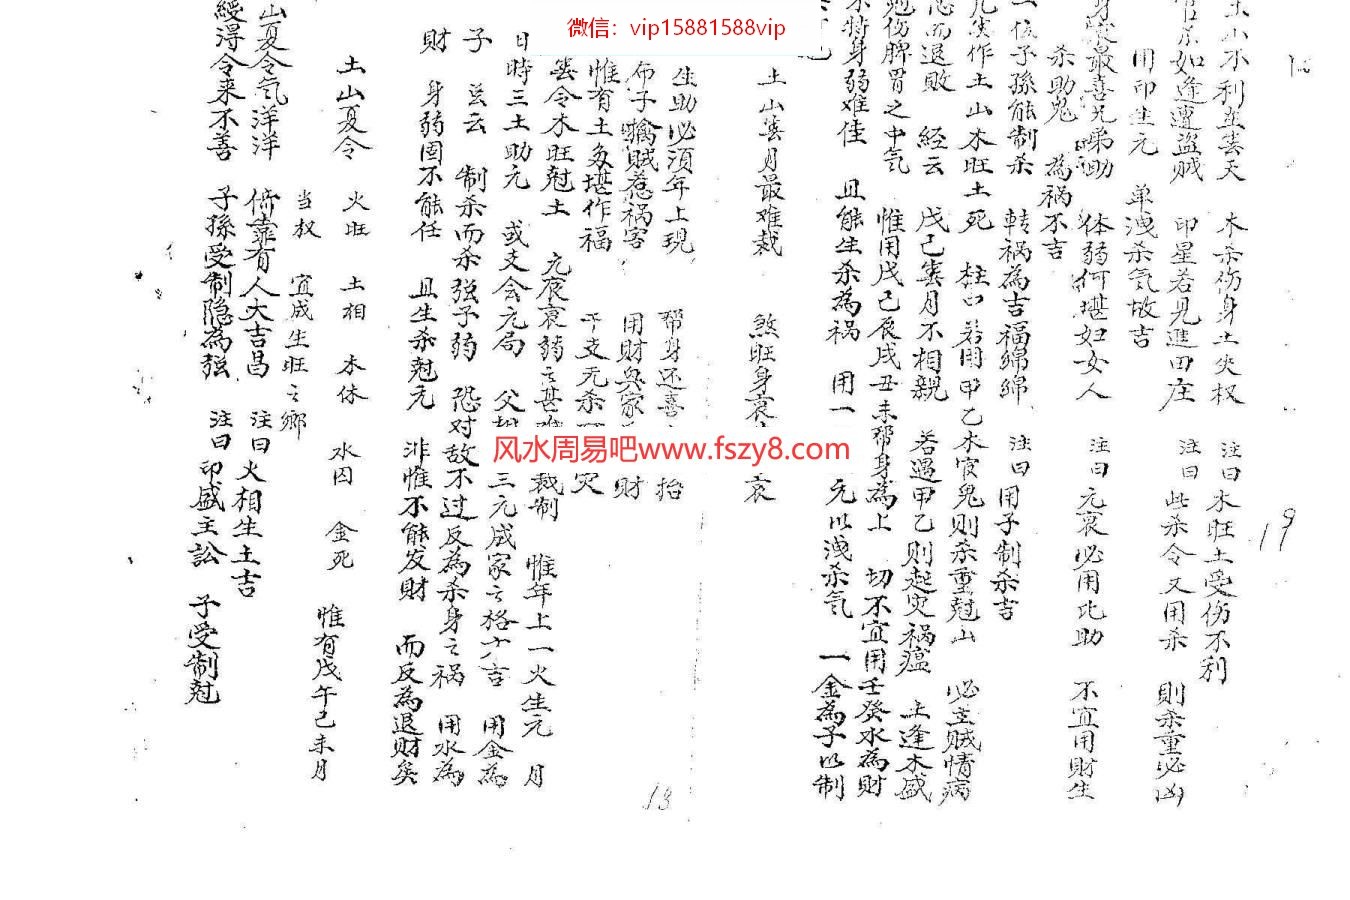 微信：vip15881588vip
土山不利在春天 木杀伤身土失权 注曰木旺土受伤不利
官杀如逢遭盗贼 印星若见进田庄 注曰此杀令又用杀 则杀重必凶
用印生元 单洩杀气故吉
身衰最喜兄弟助 体弱何堪妇女人 注曰元衰必用比助 不宜用财生
杀助鬼 為祸不吉
一位子孫能制杀 転祸為吉福绵绵 注曰用子制杀吉
凡癸作土山木旺土死 柱口若用甲乙木官鬼则杀重尅山 必主贼情病
而退败 经云 戊己春月不相親 若遇甲乙则起灾祸瘟 土逢木盛
尅伤脾胃之中气 惟用戊己辰戌丑未帮身為上 切不宜用壬癸水為财
不特身弱难佳 且能生杀為祸 用一 元以洩杀气 一金為子以制
土山春月最难裁 煞旺身衰 衰
生助必须年上現 帮身还喜 抬
布子擒贼惹祸害 用财與家 财
惟有土多堪作福 干支无杀 灾
春令木旺尅土 元辰衰弱之甚难裁制 惟年上一火生元 月
日時三土助元 或支会元局 父 三元成家之格大吉 用金為
子 曰云 制杀而杀强子弱 恐对敌不过反為杀身之祸 用水為
财 身弱固不能任 且生杀尅元 非惟不能发财 而反為退财矣
13
19
土山夏令 火旺 土相 木休 水囚 金死 惟有戊午己未月
当权 宜成生旺之鄉
山夏令气洋洋 倚靠有人大吉昌 注曰火相生土吉
綬得令来不善 子孫受制隐為强 注曰印盛主訟 子受制尅
风水周易吧www.fszy8.com